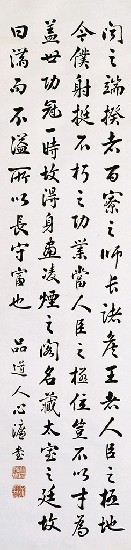 聞之端揆者百寮之師長諸侯王者人臣之極地
今僕射挺不朽之功業當人臣之極位豈不以才為
蓋世功冠一時故得身畫凌煙之閣名藏太室之廷故
曰滿而不溢所以長守富也
品道人心濂書